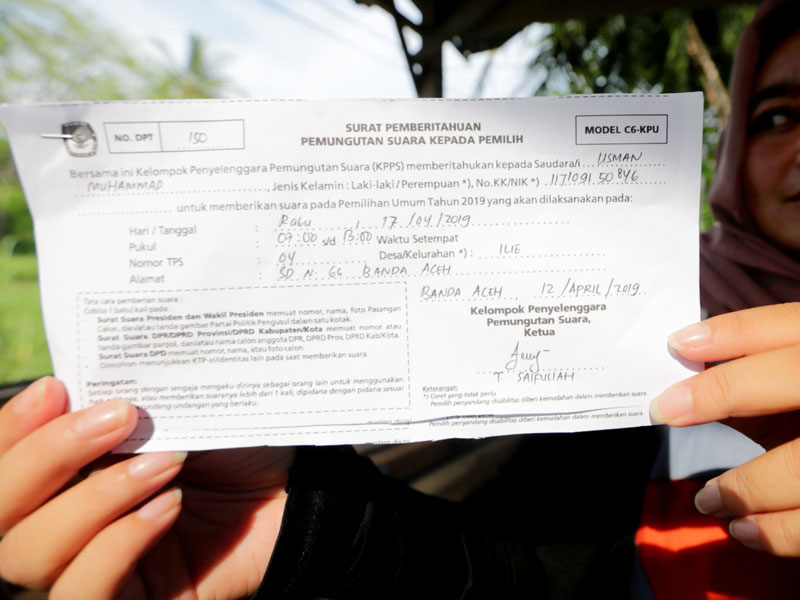 NO. DPT 150
SURAT PEMBERITAHUAN
PEMUNGUTAN SUARA KEPADA PEMILIH
MODEL C6-KPU
Bersama ini Kelompok Penyelenggara Pemungutan Suara (KPPS) memberitahukan kepada Saudara/i USMAN
MUHAMMAD, Jenis Kelamin : Laki-laki / Perempuan *), No.KK/NIK *) 117109150846
untuk memberikan suara pada Pemilihan Umum Tahun 2019 yang akan dilaksanakan pada:
Hari / Tanggal : Rabu, 17/04/2019
Pukul : 07:00 s/d 13:00 Waktu Setempat
Nomor TPS : 04 Desa/Kelurahan *) : ILIE
Alamat : SD. N. 66 BANDA ACEH
BANDA ACEH 12/APRIL/2019
Kelompok Penyelenggara
Pemungutan Suara,
Ketua
T SAIFULLAH
Tata cara pemberian suara :
Coblos 1 (satu) kali pada :
Surat Suara Presiden dan Wakil Presiden memuat nomor, nama, foto Pasangan
Calon, dan/atau tanda gambar Partai Politik Pengusul dalam satu kotak.
Surat Suara DPR/DPRD Provinsi/DPRD Kabupaten/Kota memuat nomor atau
tanda gambar parpol, dan/atau nama calon anggota DPR, DPRD Prov, DPRD Kab/Kota.
Surat Suara DPD memuat nomor, nama, atau foto calon.
Dimohon menunjukkan KTP-el/identitas lain pada saat memberikan suara.
Peringatan:
Setiap orang dengan sengaja mengaku dirinya sebagai orang lain untuk menggunakan
atau memberikan suaranya lebih dari 1 kali, dipidana dengan pidana sesuai
undang-undangan yang berlaku.
Keterangan:
*) Coret yang tidak perlu
Pemilih penyandang disabilitas diberi kemudahan dalam memberikan suara
Pemilih penyandang disabilitas diberi kemudahan dalam memberikan suara